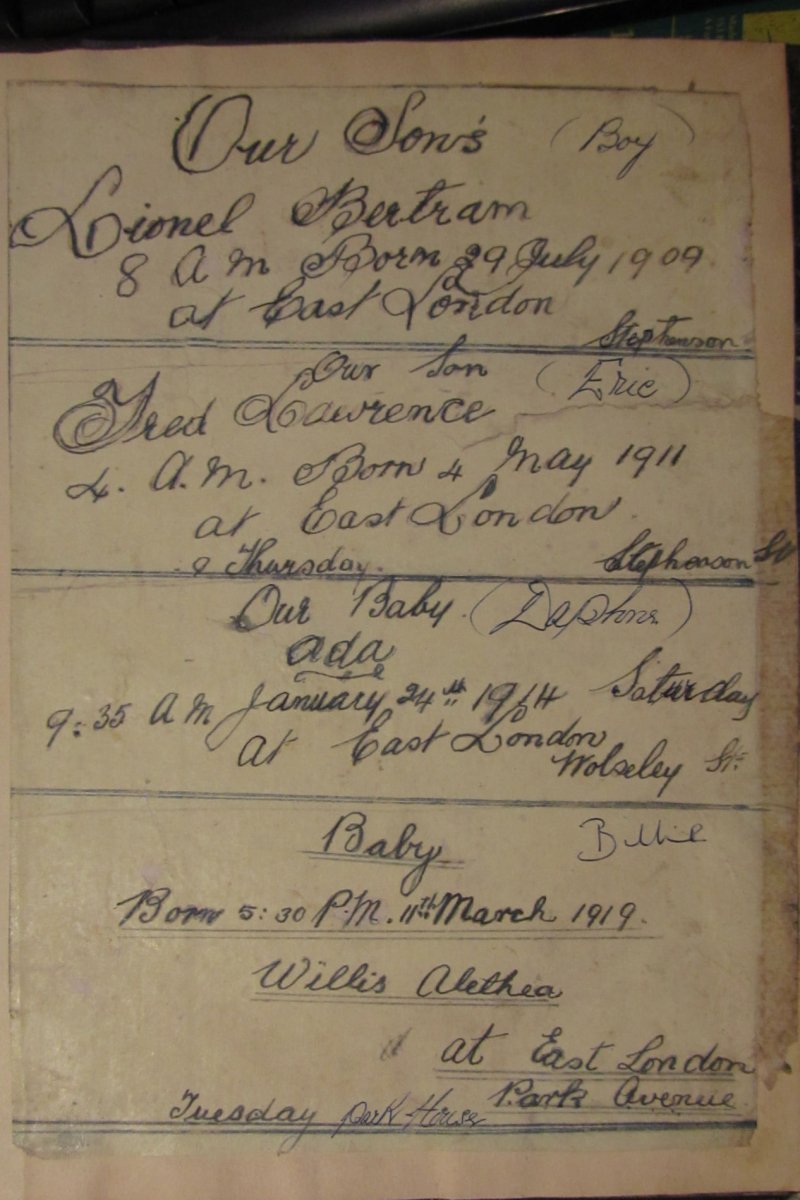 Our Son's (Boy)
Lionel Bertram
8 A M Born 29 July 1909
at East London
Stephenson
Our Son (Eric)
Fred Lawrence
4. A.M. Born 4 May 1911
at East London
Thursday. Stephenson St
Our Baby (Daphne)
Ada
9:35 A M January 24th 1914 Saturday
at East London
Wolseley St:
Baby Billie
Born 5:30 P.M. 11th March 1919.
Willis Alethea
at East London
Park Avenue
Tuesday Park House